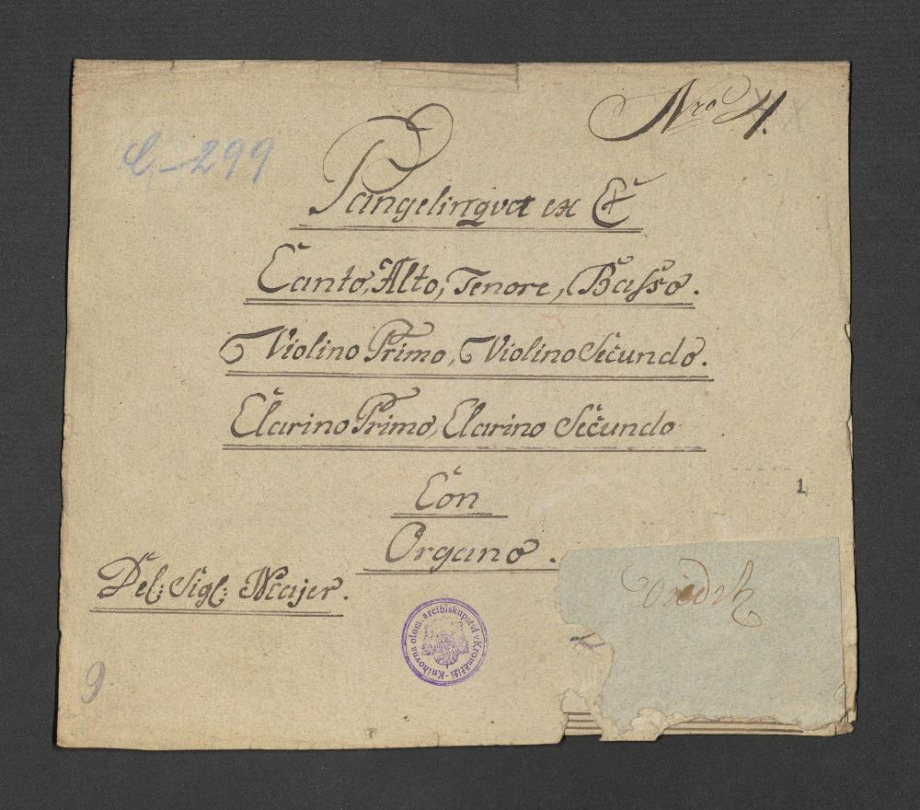 Nro 4.
C-299
Pangelingva ex C
Canto, Alto, Tenore, Basso.
Violino Primo, Violino Secundo.
Clarino Primo, Clarino Secundo
Con
Organo.
1
Del: Sigl: Majer.
Knihovna olom. arcibiskupství v Kroměříži
9